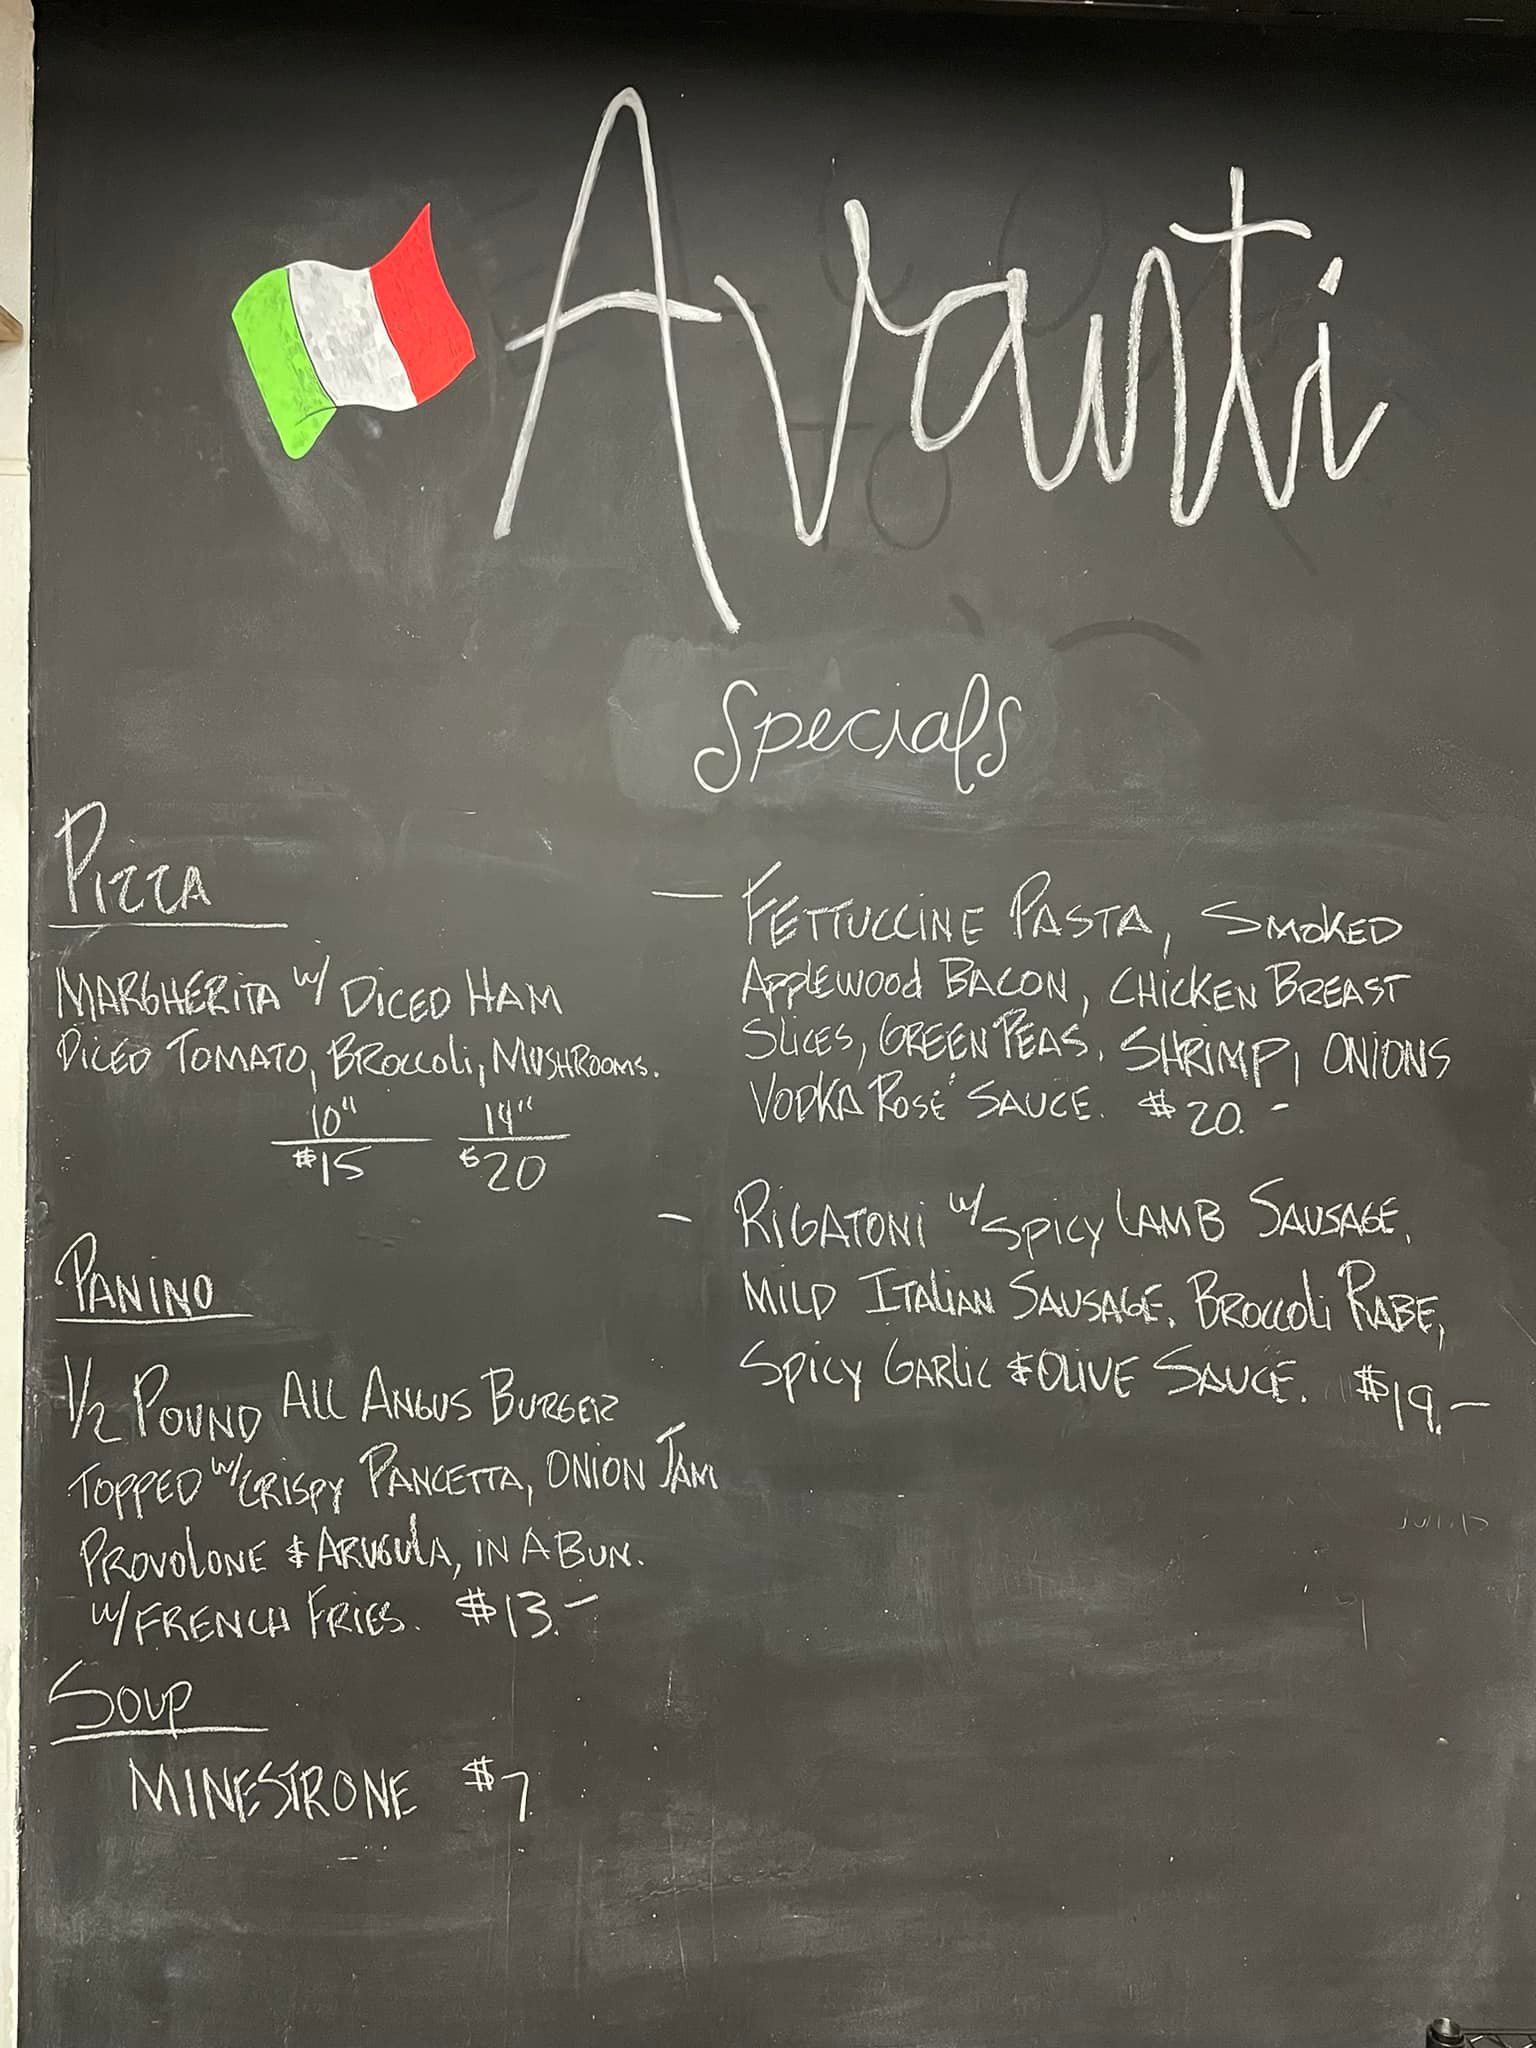 Avanti
Specials
PIZZA
MARGHERITA W/ DICED HAM
DICED TOMATO, BROCCOLI, MUSHROOMS.
10" 14"
$15 $20
PANINO
1/2 POUND ALL ANGUS BURGER
TOPPED W/ CRISPY PANCETTA, ONION JAM
PROVOLONE & ARUGULA, IN A BUN.
W/ FRENCH FRIES. $13.-
SOUP
MINESTRONE $7
- FETTUCCINE PASTA, SMOKED
APPLEWOOD BACON, CHICKEN BREAST
SLICES, GREEN PEAS, SHRIMP, ONIONS
VODKA ROSÉ SAUCE. $20.-
- RIGATONI W/ SPICY LAMB SAUSAGE,
MILD ITALIAN SAUSAGE, BROCCOLI RABE,
SPICY GARLIC & OLIVE SAUCE. $19.-